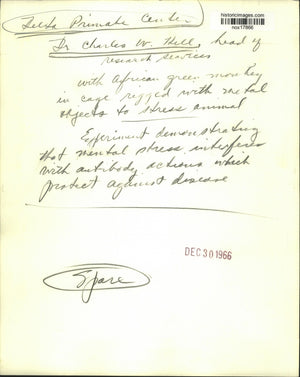 historicimages.com
nox17866
Delta Primate Center
Dr Charles W. Hill, head of
research services
with African green monkey
in cage rigged with metal
objects to stress animal
Experiment demonstrating
that mental stress interferes
with antibody actions which
protect against disease
DEC 30 1966
Spare